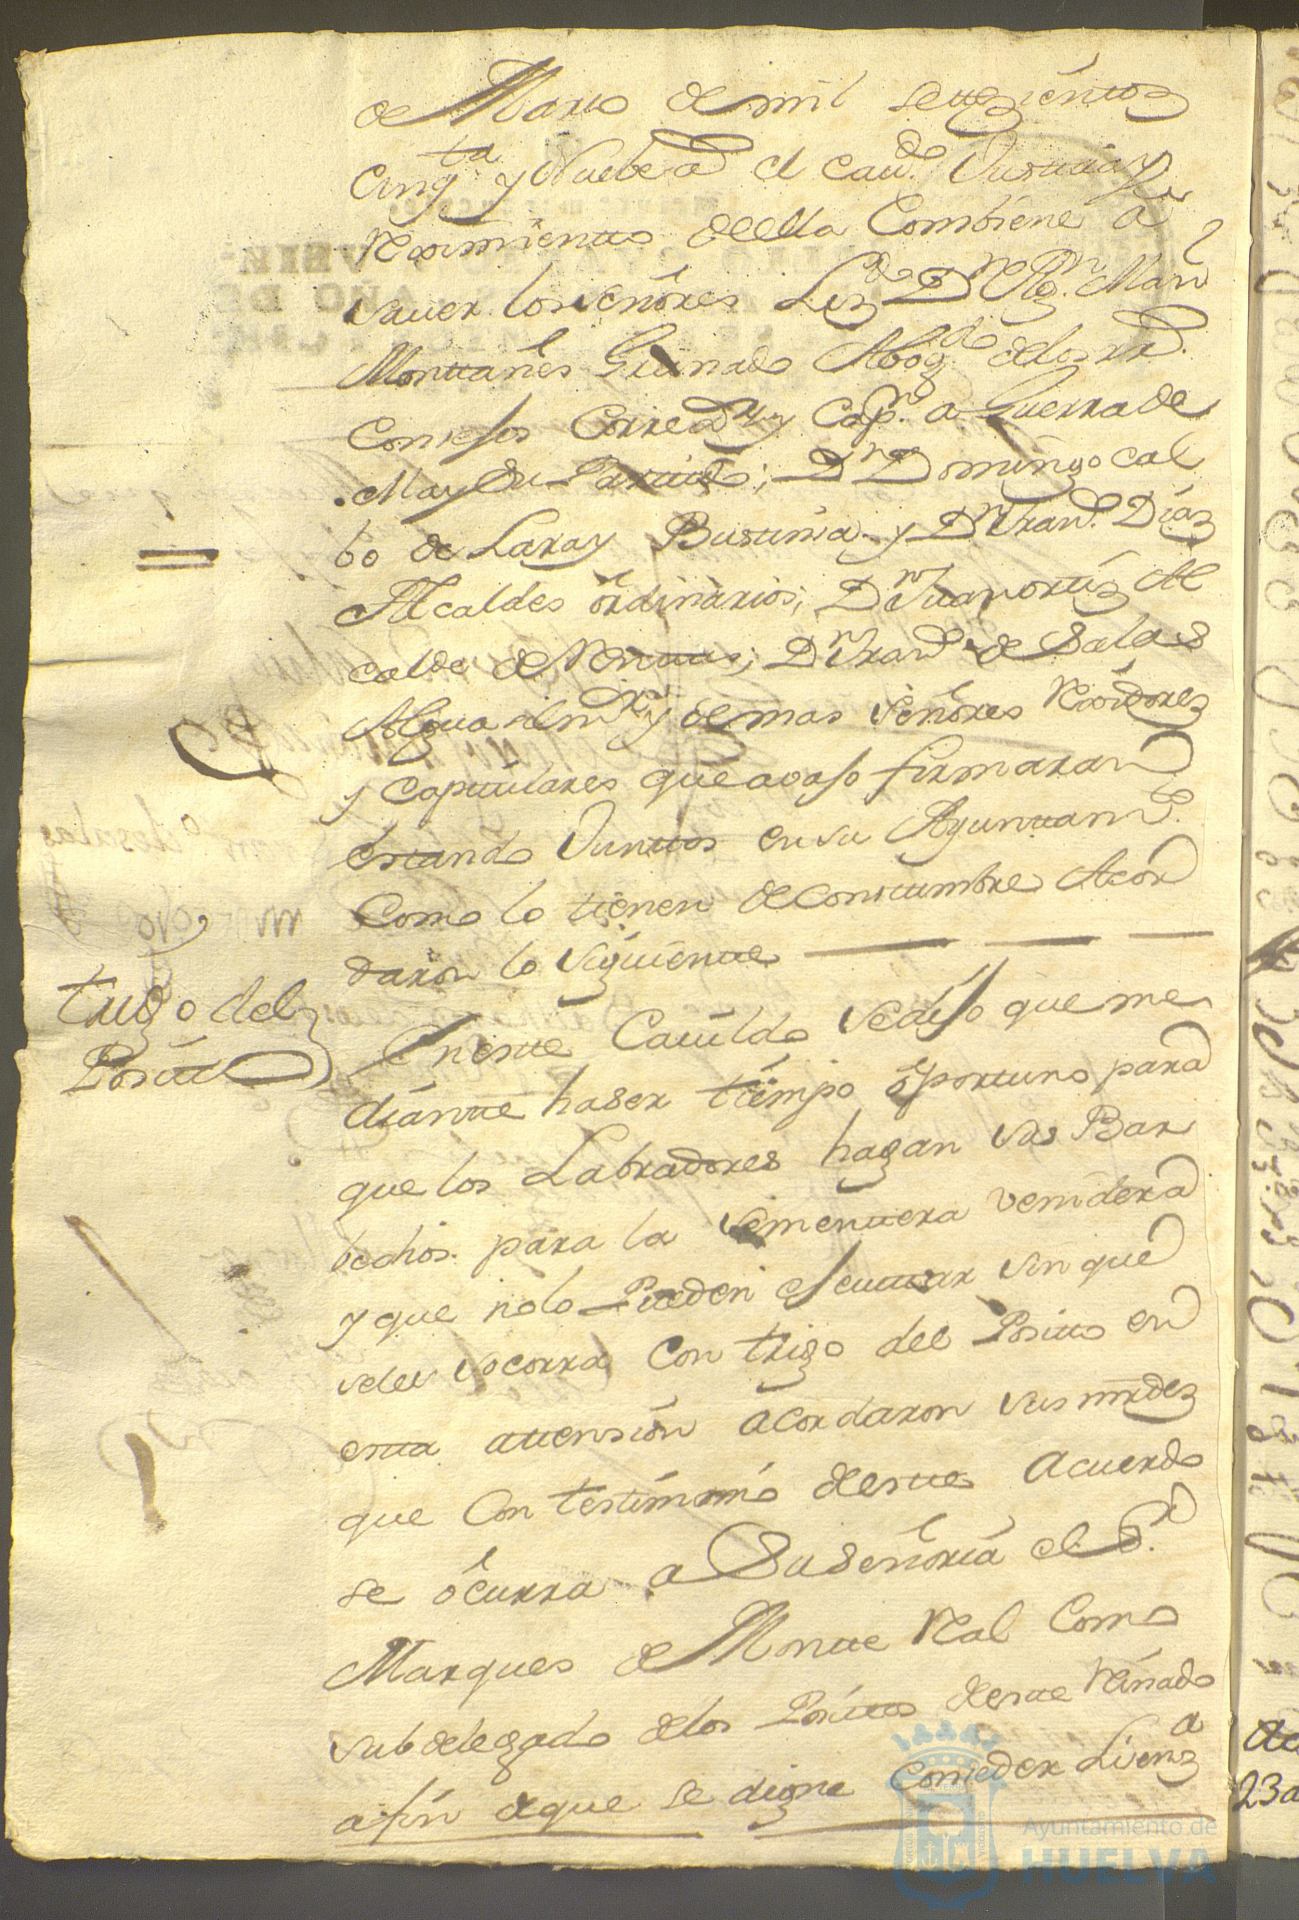 de Marzo de mil settezientos
Cinqta y Nuebe a el cavdo. Justicia y
Reximiento de ella Combiene a
saver los señores Lizdo Dn Man
Monttañes Guinado Abogdo de los Rs.
Consejos Correxr y Capn. a Guerra de
Mar y su Partido; Dn Domingo Cal
bo de Lara y Bustinza y Dn Frando. Díaz
Alcaldes ordinarios; Dn Juan ortiz Al
calde de Venttas; Dn Frando de Salas
Alguasil mr y demas señores Rexidores
y capitulares que avajo firmaran
estando Junttos en su Ayunttamto.
Como lo tienen de Constumbre Acor
daron lo siguiente
trigo del
Posito
En este Cavildo se dijo que me
diante haser tiempo óportuno para
que los Labradores hagan sus Bar
bechos para la sementtera venidera
y que no lo Pueden esecuttar sin que
se les socorra Con trigo del Positto en
esta attension acordaron sus mrdez
que Con testimonio de este Acuerdo
se ócurra a Su Señoria el Sr.
Marques de Montte Real Como
subdelegado de los Posittos de este Reinado
a fin de que se digne Conseder Lisenza
Ayuntamiento de
HUELVA